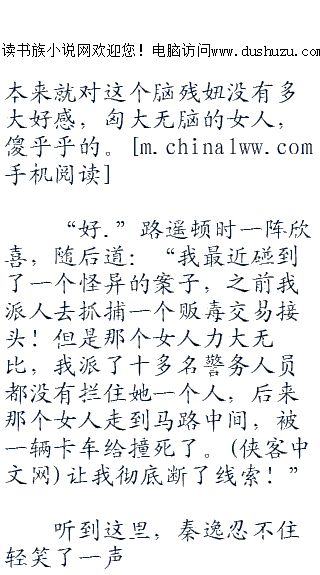 读书族小说网欢迎您！电脑访问www.dushuzu.com
本来就对这个脑残妞没有多
大好感，匈大无脑的女人，
傻乎乎的。[m.china1ww.com
手机阅读]
“好.”路遥顿时一阵欣
喜，随后道：“我最近碰到
了一个怪异的案子，之前我
派人去抓捕一个贩毒交易接
头！但是那个女人力大无
比，我派了十多名警务人员
都没有拦住她一个人，后来
那个女人走到马路中间，被
一辆卡车给撞死了。(侠客中
文网)让我彻底断了线索！”
听到这里，秦逸忍不住
轻笑了一声